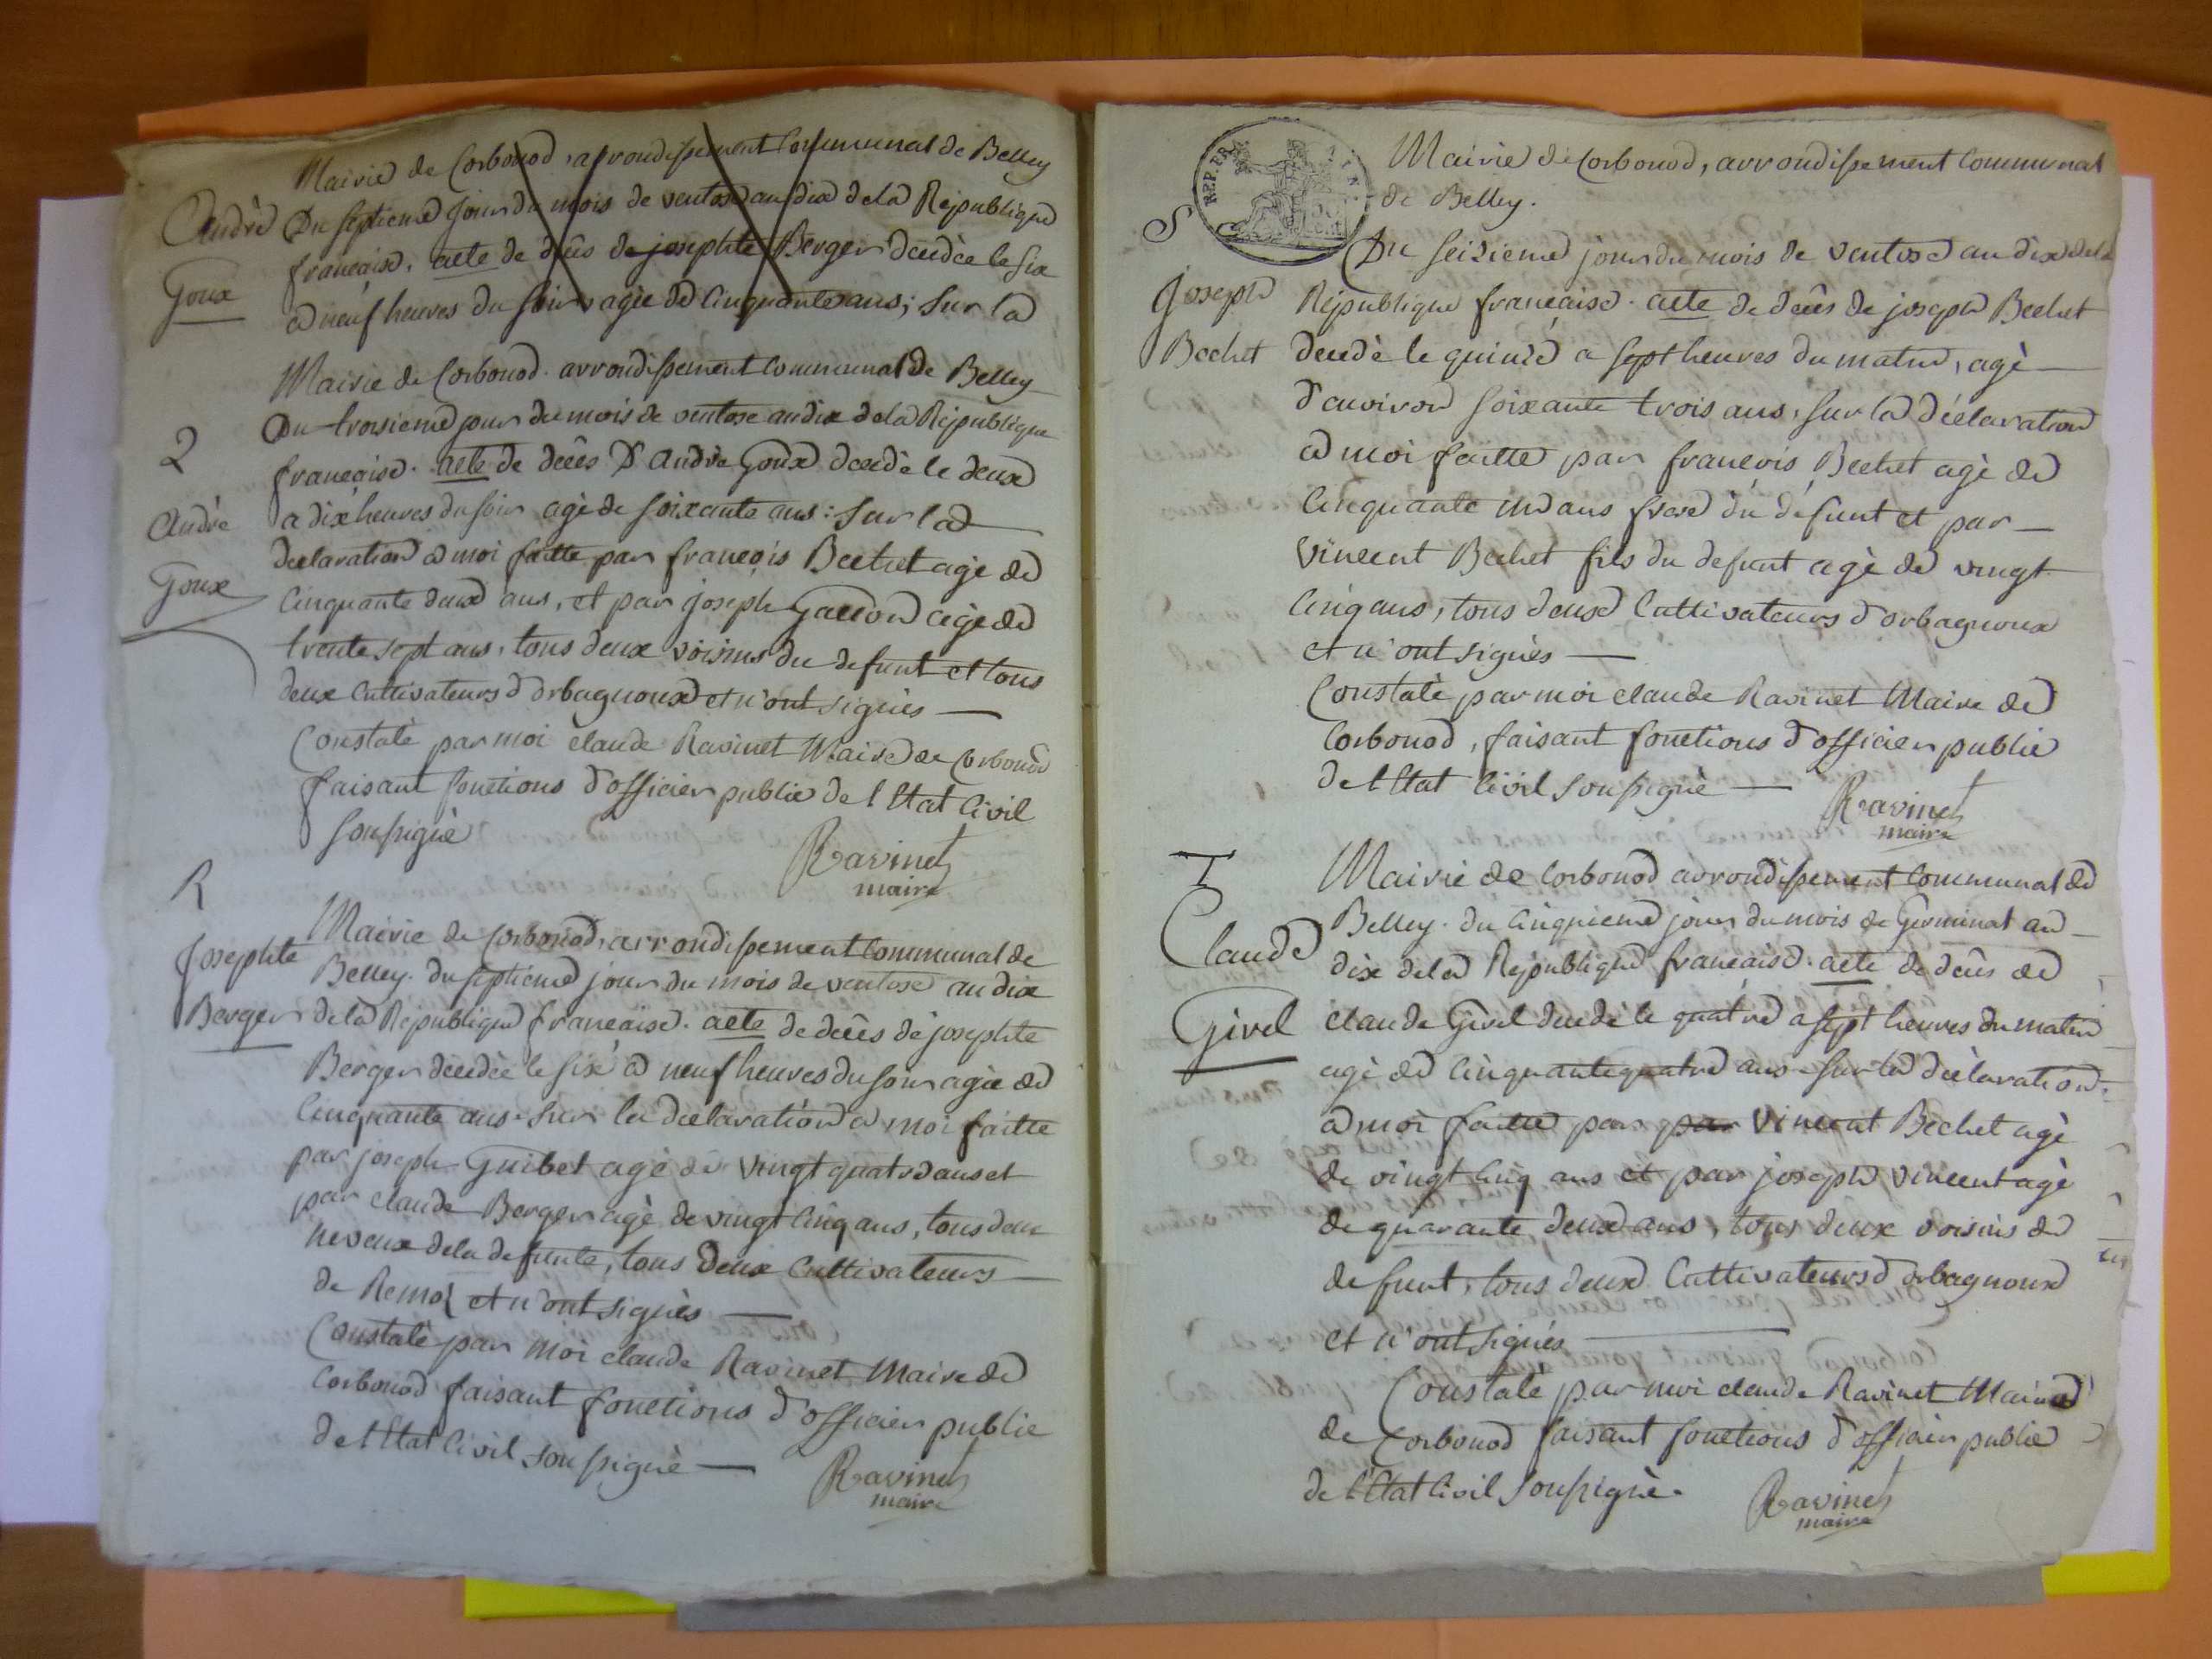 Mairie de Corbonod, arrondissement Communal de Belley
André
Du septieme jour du mois de ventose an dix de la Republique
francaise. acte de décès de josephte Berger decedée le six
Goux
a neuf heures du soir agée de Cinquante ans; sur la
Mairie de Corbonod. arrondissement Communal de Belley
Du troisieme jour du mois de ventose an dix de la Republique
2
francaise. acte de décès D'André Goux decedé le deux
André
a dix heures du soir agé de soixante ans: sur la
Goux
declaration a moi faitte par francois Bechet agé de
Cinquante deux ans, et par joseph Gallod agé de
trente sept ans, tous deux voisins du defunt et tous
deux Cultivateurs d'orbagnoux et n'ont signés —
Constaté par moi claude Ravinet Maire de Corbonod
faisant fonctions d'officier public de l'Etat Civil
soussigné
Ravinet
maire
R
Josephte
Berger
Mairie de Corbonod, arrondissement Communal de
Belley. du septieme jour du mois de ventose an dix
de la Republique francaise. acte de décès de josephte
Berger decedée le six a neuf heures du soir agée de
Cinquante ans. sur la declaration a moi faitte
par joseph Guibet agé de vingt quatre ans et
par claude Berger agé de vingt cinq ans, tous deux
neveux de la defunte, tous deux Cultivateurs
de Remoz et n'ont signés —
Constaté par moi claude Ravinet Maire de
Corbonod faisant fonctions d'officier public
de l'Etat Civil soussigné —
Ravinet
maire
REP. FRA
Mairie de Corbonod, arrondissement Communal
de Belley.
S
Joseph
Bechet
Du seizieme jour du mois de ventose an dix de la
Republique francaise. acte de décès de joseph Bechet
decedé le quinze a sept heures du matin, agé
D'environ soixante trois ans, sur la déclaration
a moi faitte par francois Bechet agé de
Cinquante un ans frere du défunt et par —
Vincent Bechet fils du defunt agé de vingt
Cinq ans, tous deux Cultivateurs d'orbagnoux
et n'ont signés —
Constaté par moi claude Ravinet Maire de
Corbonod, faisant fonctions d'officier public
de l'Etat Civil soussigné —
Ravinet
maire
T
Claude
Girel
Mairie de Corbonod arrondissement Communal de
Belley. du Cinquieme jour du mois de Germinal an
dix de la Republique francaise. acte de décès de
claude Girel decedé le quatre a sept heures du matin
agé de Cinquante quatre ans. sur la déclaration
a moi faitte par par Vincent Bechet agé
de vingt cinq ans et par joseph Vincent agé
de quarante deux ans, tous deux voisins du
defunt, tous deux Cultivateurs d'orbagnoux
et n'ont signés —
Constaté par moi claude Ravinet Maire
de Corbonod faisant fonctions d'officier public
de l'Etat Civil soussigné.
Ravinet
maire